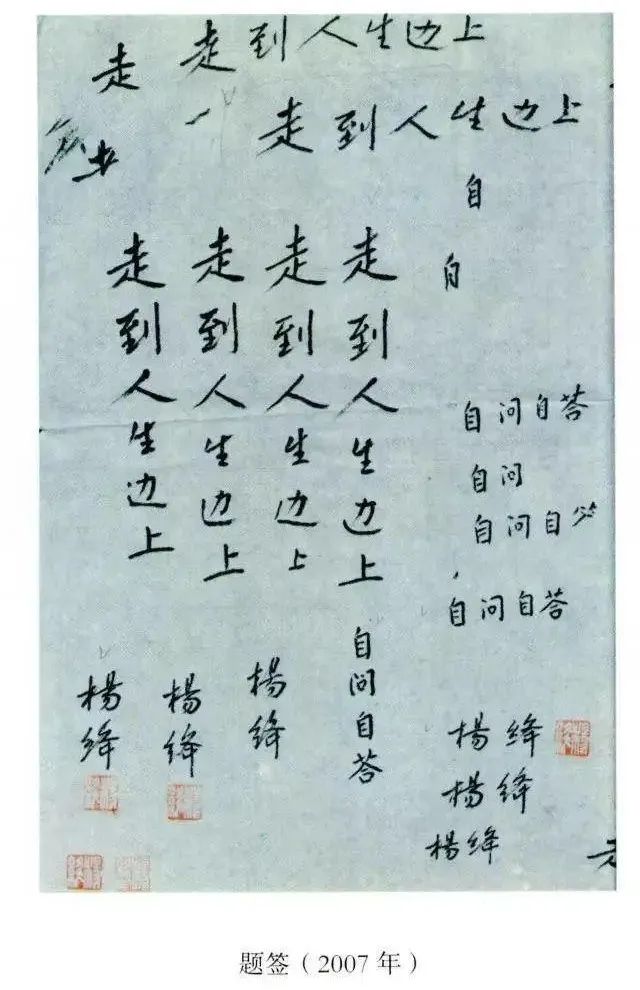 走 走到人生边上
走到人生边上
自
自
走到人生边上
走到人生边上
走到人生边上
走到人生边上
自问自答
自问自答
自问
自问自
自问自答
杨绛
杨绛
杨绛
杨绛
杨绛
杨绛
走
题签（2007年）